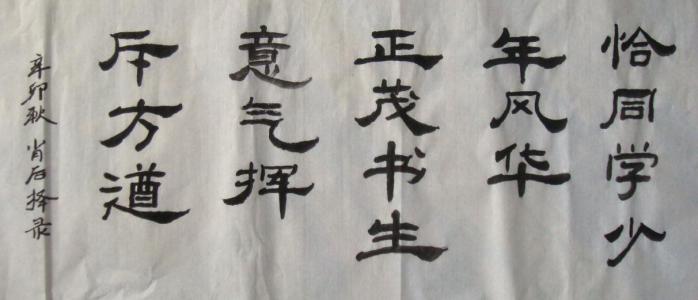 恰同学少
年风华
正茂书生
意气挥
斥方遒
辛卯秋肖后择录